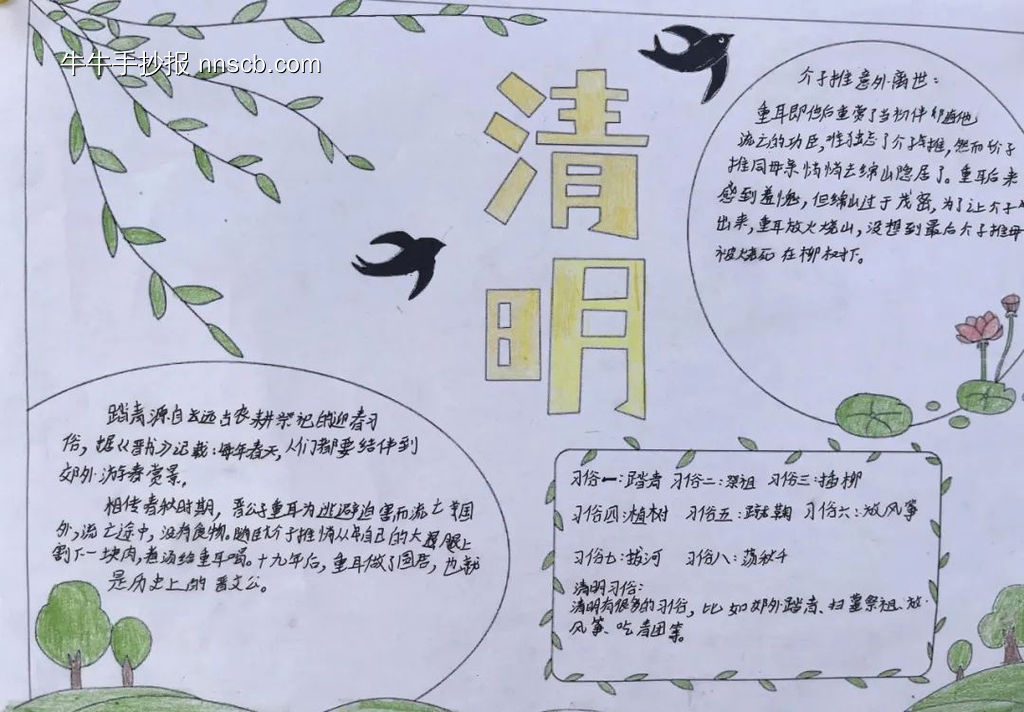 牛牛手抄报 nnscb.com
清明
介子推意外离世:
重耳即位后重赏了当初伴随他
流亡的功臣,唯独忘了介子推,然而介子
推同母亲悄悄去绵山隐居了。重耳后来
感到羞愧,但绵山过于茂密,为了让介子
出来,重耳放火烧山,没想到最后介子推母
被烧死在柳树下。
踏青源自远古农耕祭祀的迎春习
俗,据《晋书》记载:每年春天,人们都要结伴到
郊外游春赏景。
相传春秋时期,晋公子重耳为逃避迫害而流亡国
外,流亡途中,没有食物。随臣介子推悄从自己的大腿上
割下一块肉,煮汤给重耳喝。十九年后,重耳做了国君,也就
是历史上的晋文公。
习俗一:踏青 习俗二:祭祖 习俗三:插柳
习俗四:植树 习俗五:蹴鞠 习俗六:放风筝
习俗七:拔河 习俗八:荡秋千
清明习俗:
清明有很多的习俗,比如郊外踏青、扫墓祭祖、放
风筝、吃青团等。